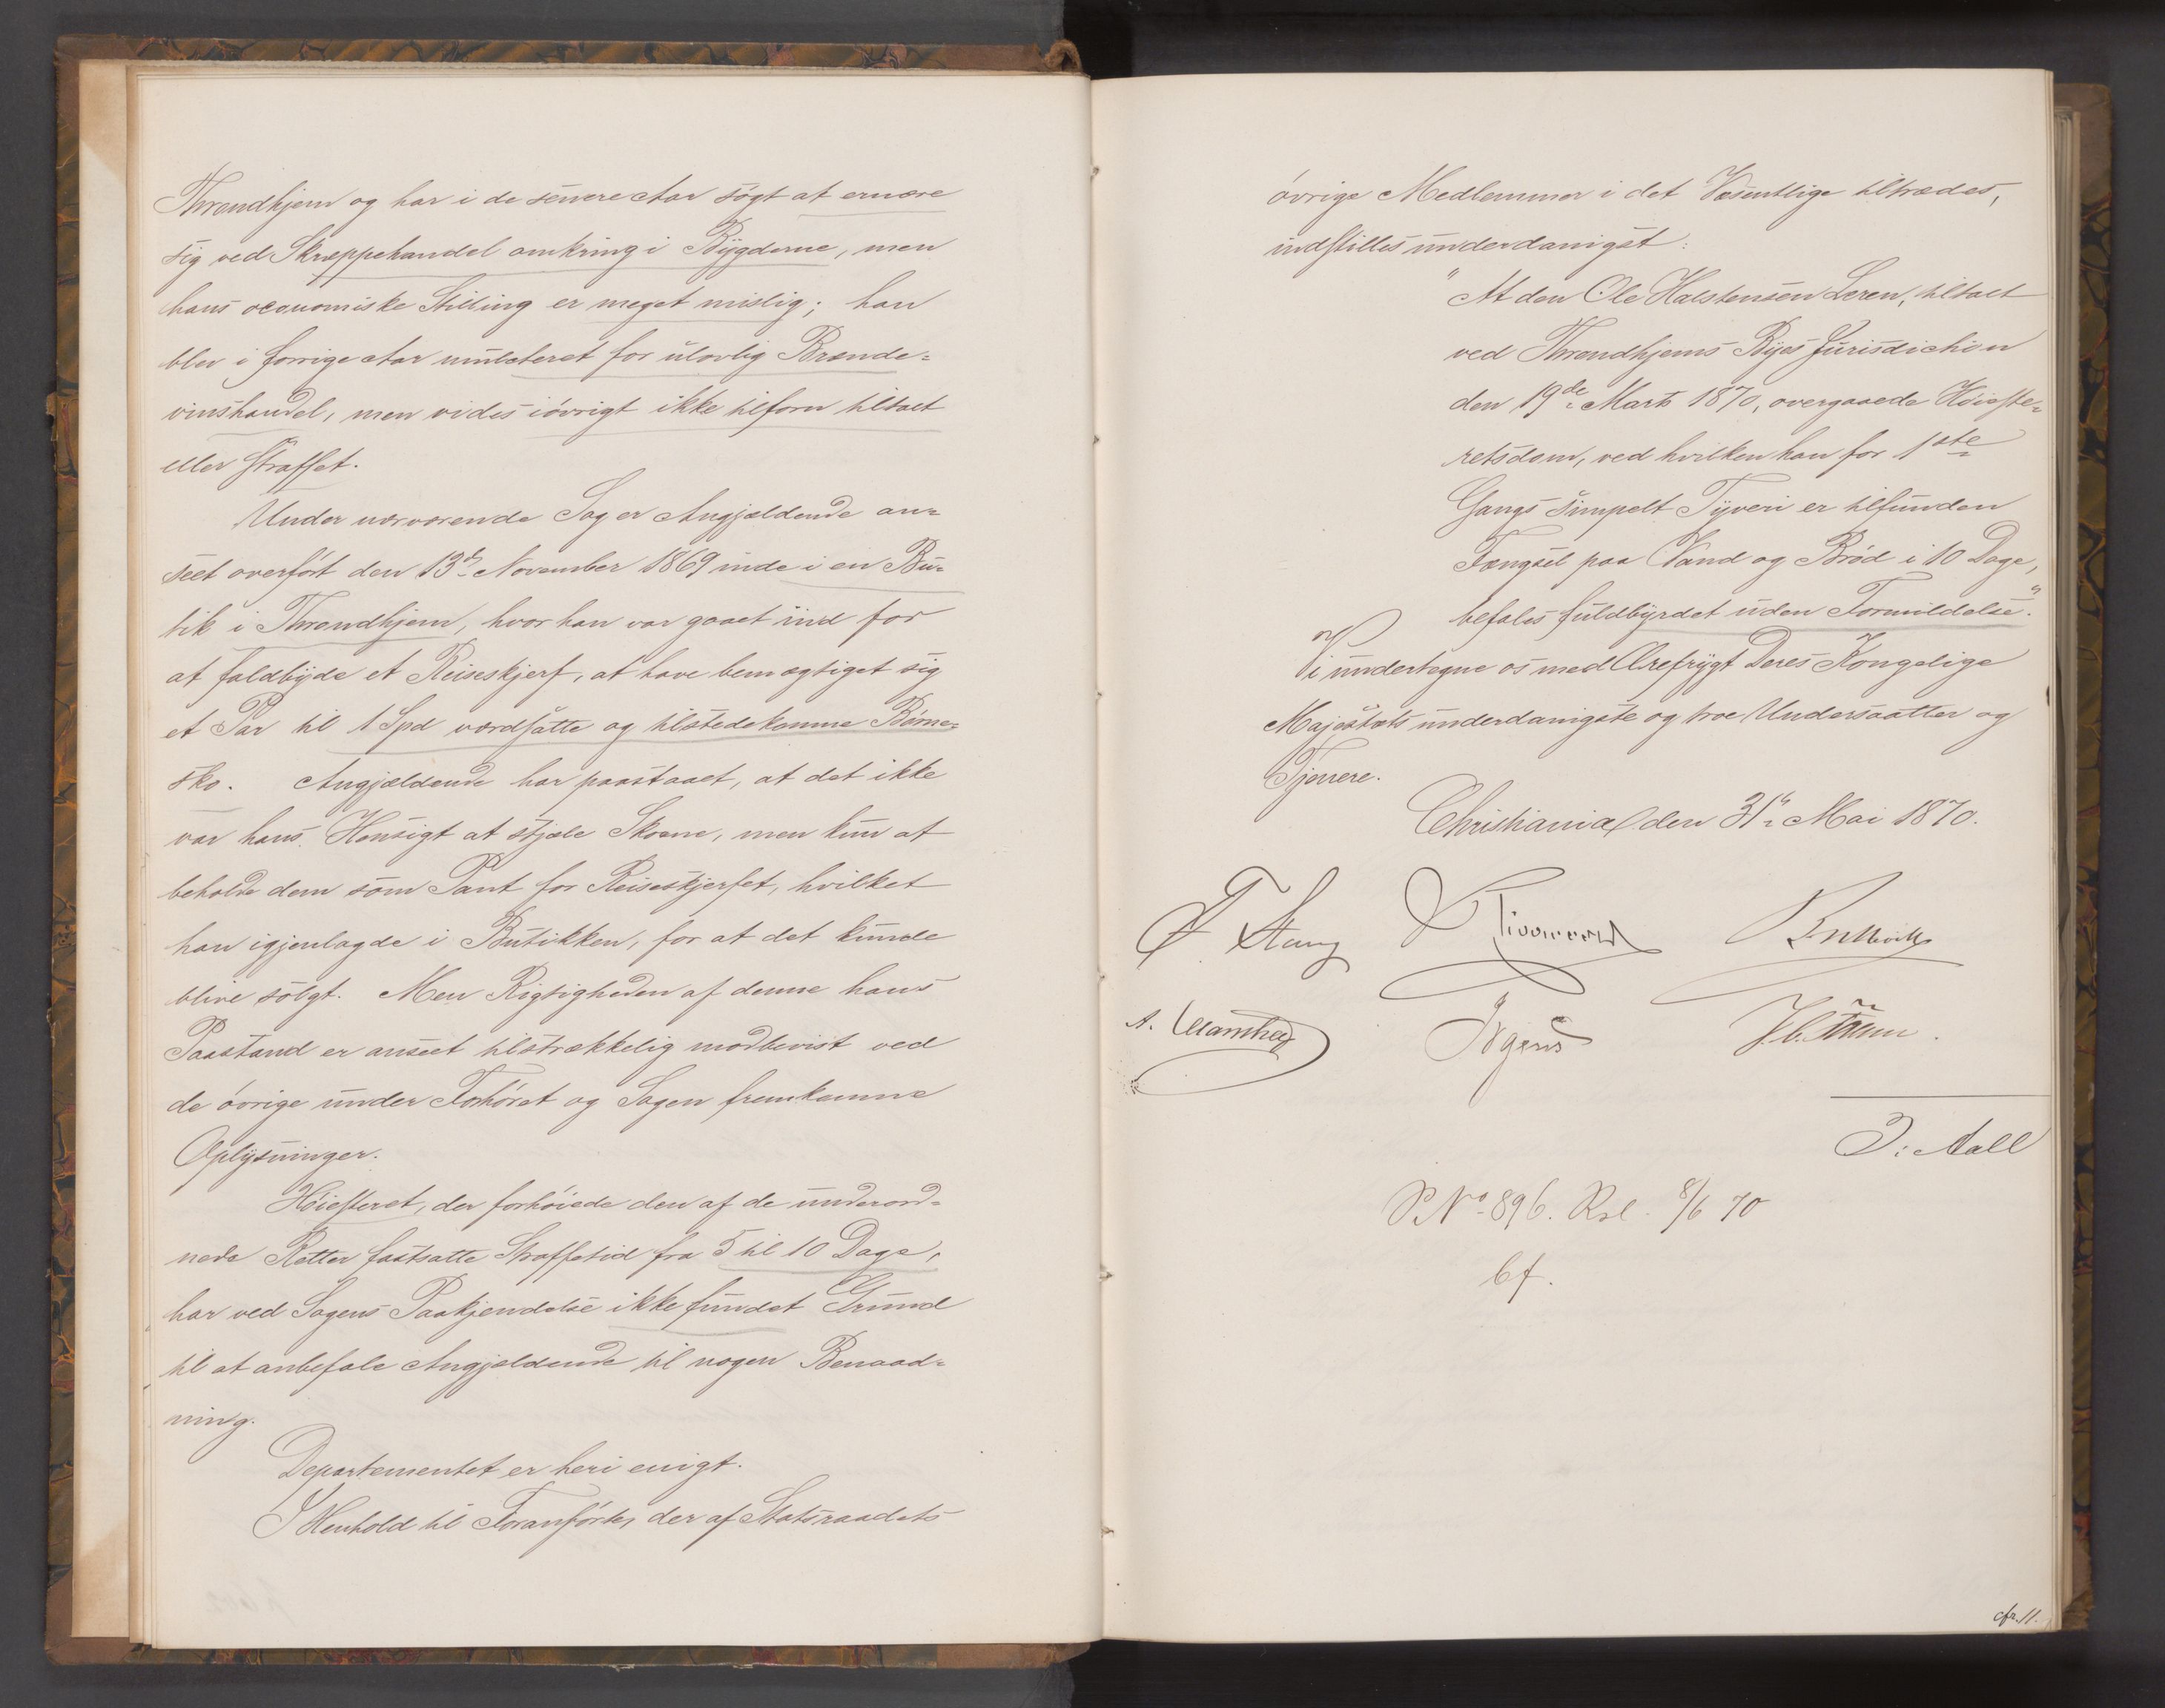 Throndhjem og har i de senere Aar søgt at ernære
sig ved Skræppehandel omkring i Bygderne, men
hans oeconomiske Stilling er meget mislig; han
blev i forrige Aar mulcteret for ulovlig Brænde-
vinshandel, men vides iøvrigt ikke tilforn tiltalt
eller straffet.
Under nærværende Sag er Angjældende an-
seet overført den 13de November 1869 inde i en Bu-
tik i Throndhjem, hvor han var gaaet ind for
at falbyde et Reiseskjerf, at have bemægtiget sig
et Par til 1 Spd værdsatte og tilstedekomne Børne-
sko. Angjældende har paastaaet, at det ikke
var hans Hensigt at stjæle Skoene, men kun at
beholde dem som Pant for Reiseskjerfet, hvilket
han igjenlagde i Butikken, for at det kunde
blive solgt. Men Rigtigheden af denne hans
Paastand er anseet tilstrækkelig modbevist ved
de øvrige under Forhøret og Sagen fremkomne
Oplysninger.
Høiesteret, der forhøiede den af de underord-
nede Retter fastsatte Straffetid fra 5 til 10 Dage,
har ved Sagens Paakjendelse ikke fundet Grund
til at anbefale Angjældende til nogen Benaad-
ning.
Departementet er heri enigt.
I Henhold til Foranførte, der af Statsraadets
øvrige Medlemmer i det Væsentlige tiltrædes,
indstilles underdanigst:
"At den Ole Halstensen Leren, tiltalt
ved Throndhjems Byes Jurisdiction
den 19de Marts 1870, overgaaede Høieste-
retsdom, ved hvilken han for 1ste
Gangs simpelt Tyveri er tilfunden
Fængsel paa Vand og Brød i 10 Dage,
befales fuldbyrdet uden Formildelse."
Vi undertegne os med Ærefrygt Deres Kongelige
Majestæts underdanigste og troe Undersaatter og
Tjenere.
Christiania den 31te Mai 1870.
F. Stang
Irgens
D: Aall
P. No 896. Rsl. 8/6 70
bf.
cfr. 11.